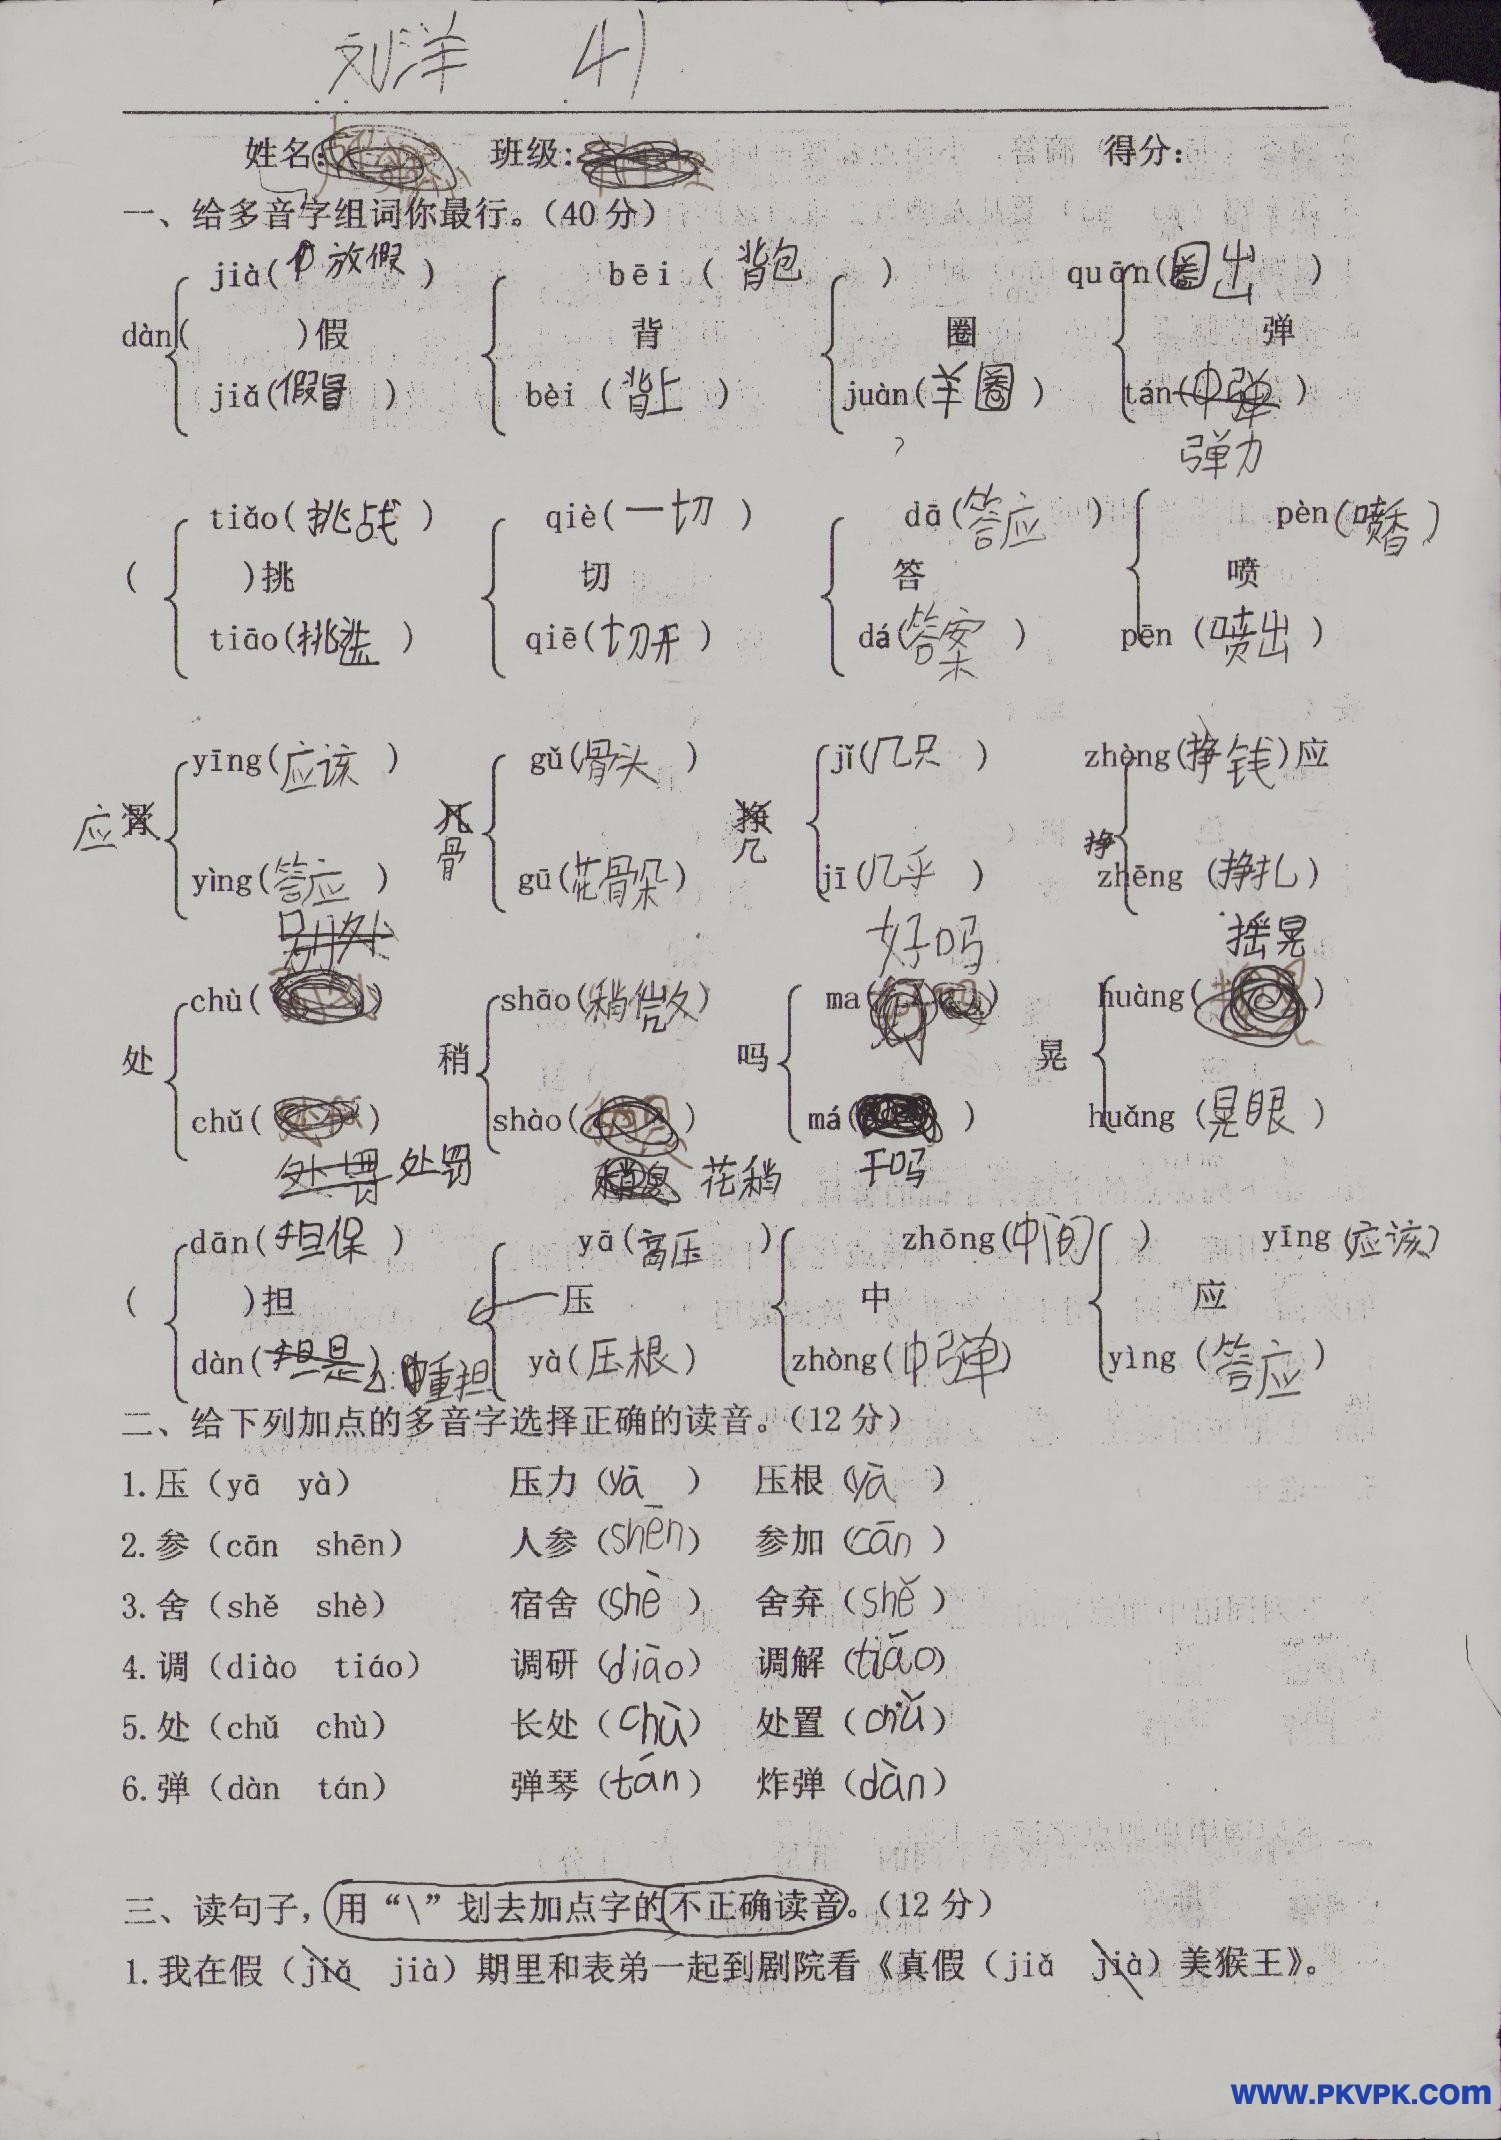 刘洋 41
姓名: 班级: 得分:
一、给多音字组词你最行。(40分)
jià(放假) bēi(背包) quān(圈出)
dàn( )假 背 圈 弹
jiǎ(假冒) bèi(背上) juàn(羊圈) tán(中弹)
弹力
tiǎo(挑战) qiè(一切) dā(答应) pèn(喷香)
( )挑 切 答 喷
tiāo(挑选) qiē(切开) dá(答案) pēn(喷出)
yīng(应该) gǔ(骨头) jǐ(几只) zhèng(挣钱)应
应 骨 几 骨 挣 几 挣
yìng(答应) gū(花骨朵) jī(几乎) zhēng(挣扎)
别处 好吗 摇晃
chù( ) shāo(稍微) ma( ) huàng( )
处 稍 吗 晃
chǔ( ) shào( ) má( ) huǎng(晃眼)
处罚 处罚 花稍 干吗
dān(担保) yā(高压) zhōng(中间) yīng(应该)
( )担 压 中 应
dàn(担是) 重担 yà(压根) zhòng(中弹) yìng(答应)
二、给下列加点的多音字选择正确的读音。(12分)
1.压(yā yà) 压力(yā) 压根(yà)
2.参(cān shēn) 人参(shēn) 参加(cān)
3.舍(shě shè) 宿舍(shè) 舍弃(shě)
4.调(diào tiáo) 调研(diào) 调解(tiáo)
5.处(chǔ chù) 长处(chù) 处置(chǔ)
6.弹(dàn tán) 弹琴(tán) 炸弹(dàn)
三、读句子，用“\”划去加点字的不正确读音。(12分)
1.我在假(jiǎ jià)期里和表弟一起到剧院看《真假(jiǎ jià)美猴王》。
www.PKVPK.com